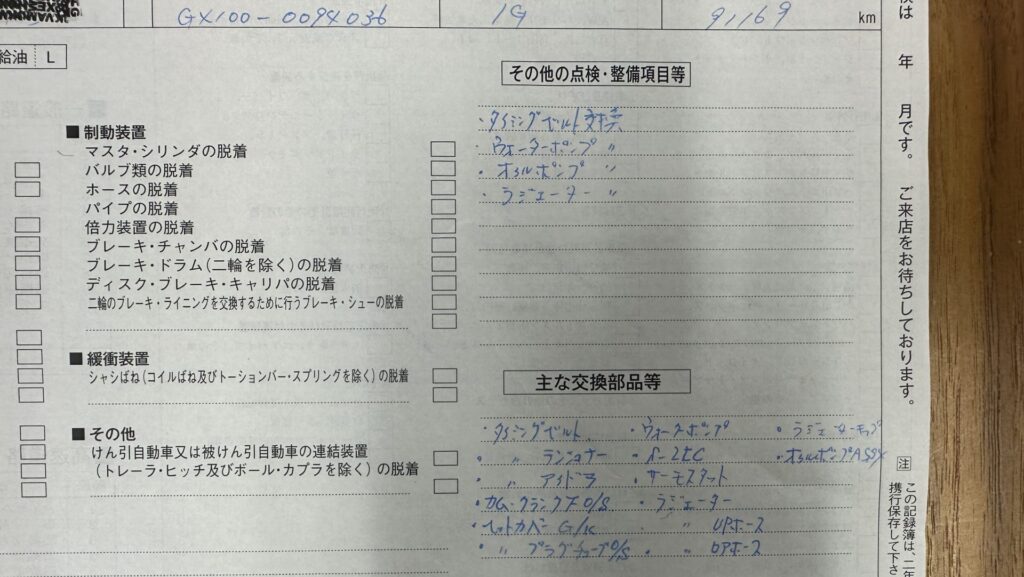 GX100-0094036 1G 91169 km
給油 L
その他の点検・整備項目等
・タイミングベルト交換
・ウォーターポンプ 〃
・オイルポンプ 〃
・ラジエーター 〃
■ 制動装置
マスタ・シリンダの脱着
バルブ類の脱着
ホースの脱着
パイプの脱着
倍力装置の脱着
ブレーキ・チャンバの脱着
ブレーキ・ドラム(二輪を除く)の脱着
ディスク・ブレーキ・キャリパの脱着
二輪のブレーキ・ライニングを交換するために行うブレーキ・シューの脱着
■ 緩衝装置
シャシばね(コイルばね及びトーションバー・スプリングを除く)の脱着
■ その他
けん引自動車又は被けん引自動車の連結装置
(トレーラ・ヒッチ及びボール・カプラを除く)の脱着
主な交換部品等
・タイミングベルト ・ウォーターポンプ ・ラジエーターキャップ
・ 〃 テンショナー ・ ・オイルポンプASSY
・ 〃 アイドラ ・サーモスタット
・カム・クランクF O/S ・ラジエーター
・ヘッドカバーG/K ・ 〃 UPホース
・ 〃 プラグチューブO/S ・ 〃 ロアホース
年 月です。 ご来店をお待ちしております。
注 この記録簿は、二年
携行保存して下さ